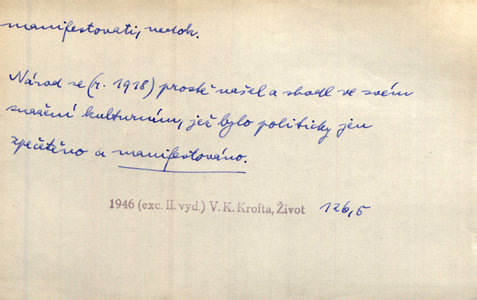 manifestovati, nedok.
Národ se (r. 1918) prostě našel a shodl ve svém
snažení kulturním, jež bylo politicky jen
zpečetěno a manifestováno.
1946 (exc. II. vyd.) V. K. Krofta, Život 126,5